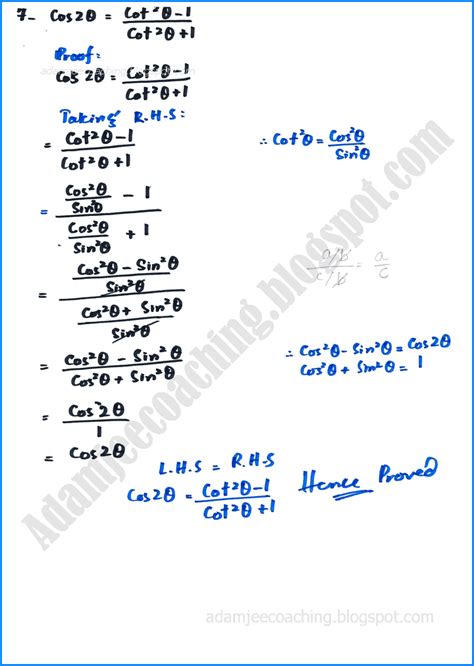 7- Cos2θ = Cot²θ-1 / Cot²θ+1
Proof:
adamjeecoaching.blogspot.com
Cos 2θ = Cot²θ-1 / Cot²θ+1
Taking R.H.S:
= Cot²θ-1 / Cot²θ+1 ∴ Cot²θ = Cos²θ / Sin²θ
= (Cos²θ / Sin²θ - 1) / (Cos²θ / Sin²θ + 1)
= ((Cos²θ - Sin²θ) / Sin²θ) / ((Cos²θ + Sin²θ) / Sin²θ) (a/b) / (c/b) = a/c
= Cos²θ - Sin²θ / Cos²θ + Sin²θ ∴ Cos²θ - Sin²θ = Cos2θ
Cos²θ + Sin²θ = 1
= Cos 2θ / 1
= Cos2θ
L.H.S = R.H.S
Cos2θ = Cot²θ-1 / Cot²θ+1 Hence Proved
Adamjeecoaching.blogspot.com
adamjeecoaching.blogspot.com